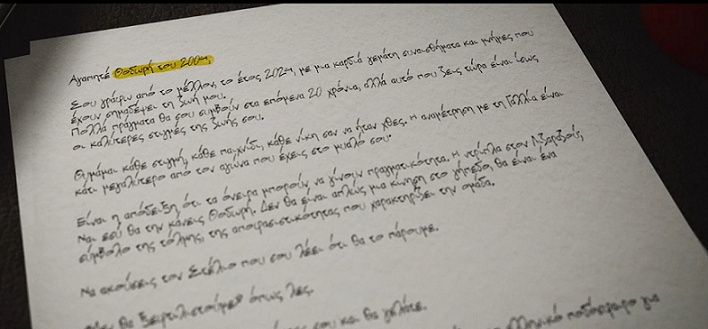 Αγαπητέ Θοδωρή του 2004,
Σου γράφω από το μέλλον, το έτος 2024, με μια καρδιά γεμάτη συναισθήματα και μνήμες που
έχουν σημαδέψει τη ζωή μου.
Πολλά πράγματα θα σου συμβούν στα επόμενα 20 χρόνια, αλλά αυτό που ζεις τώρα είναι ίσως
οι καλύτερες στιγμές της ζωής σου.
Θυμάμαι κάθε στιγμή, κάθε παιχνίδι, κάθε νίκη σαν να ήταν χθες. Η αναμέτρηση με τη Γαλλία είναι
κάτι μεγαλύτερο από τον αγώνα που έχεις στο μυαλό σου.
Είναι η απόδειξη ότι τα όνειρα μπορούν να γίνουν πραγματικότητα. Η ντρίπλα στον Λιζαραζού,
Ναι εσύ θα την κάνεις Θοδωρή. Δεν θα είναι απλώς μια κίνηση στο γήπεδο, θα είναι ένα
σύμβολο της τόλμης, της αποφασιστικότητας που χαρακτηρίζει την ομάδα.
Να ακούσεις τον Στέλιο που σου λέει ότι θα το πάρουμε.
θα ξεφτιλιστούμε" όπως λες.
σου και θα γελάτε.
ποδόσφαιρο για